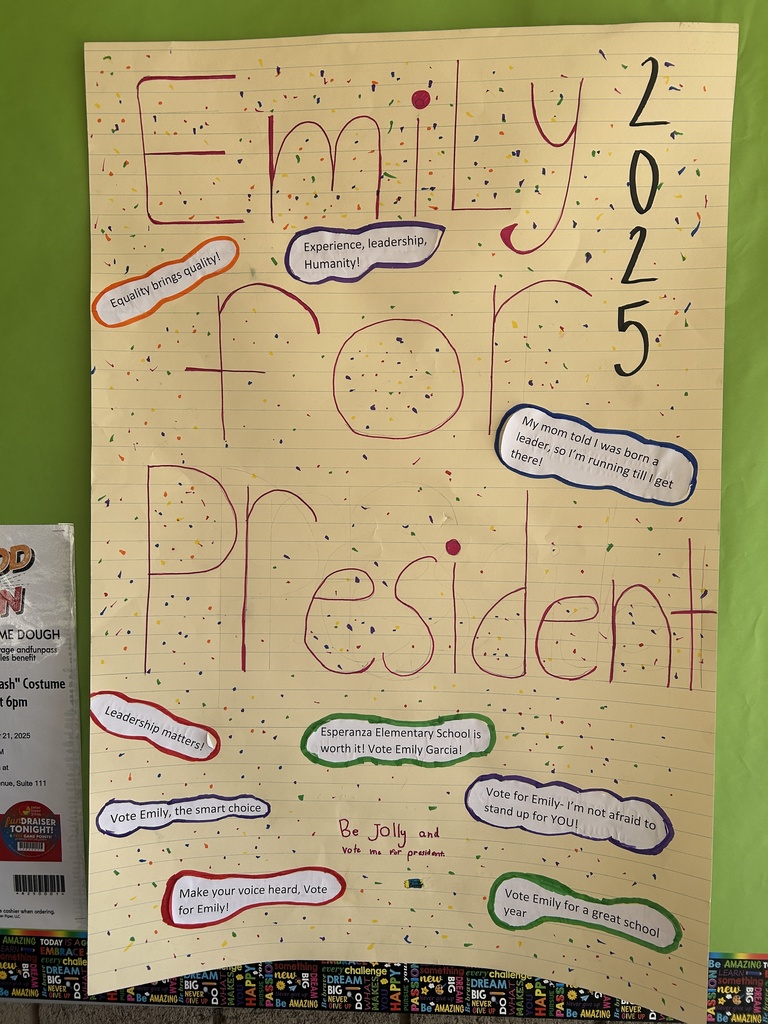 Emily
2025
Equality brings quality!
Experience, leadership,
Humanity!
for
My mom told I was born a
leader, so I'm running till I get
there!
President
Leadership matters!
Esperanza Elementary School is
worth it! Vote Emily Garcia!
Vote Emily, the smart choice
Vote for Emily- I'm not afraid to
stand up for YOU!
Be Jolly and
vote me for president
Make your voice heard, Vote
for Emily!
Vote Emily for a great school
year
ME DOUGH
age andfunpass
les benefit
ash" Costume
t 6pm
21, 2025
at
enue, Suite 111
funDRAISER
TONIGHT!
cashier when ordering.
Be AMAZING
TODAY IS A
EMBRACE
something
new
every challenge
DREAM
BIG
NEVER
GIVE UP
PASSION
HAPPY